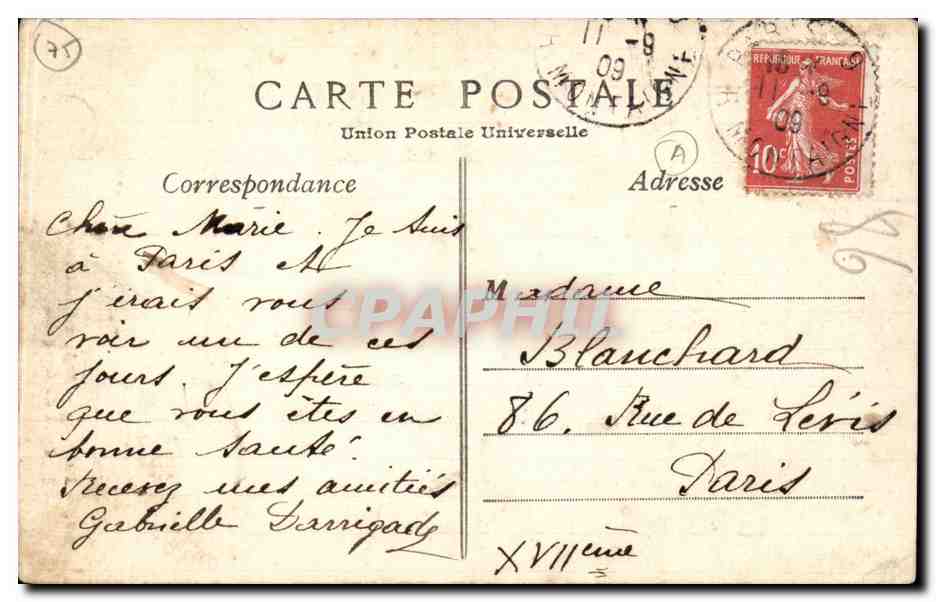 75
11 -9
09
RÉPUBLIQUE FRANÇAISE
11 -9
09
10c
POSTES
CARTE POSTALE
Union Postale Universelle
A
Correspondance
Adresse
98
Chère Marie. Je suis
à Paris et
j'irais vous
voir un de ces
jours. J'espère
que vous êtes en
bonne santé.
Recevez mes amitiés
Gabrielle Darrigade
Madame
Blanchard
86. Rue de Lévis
Paris
XVIIème
CPAPHIL